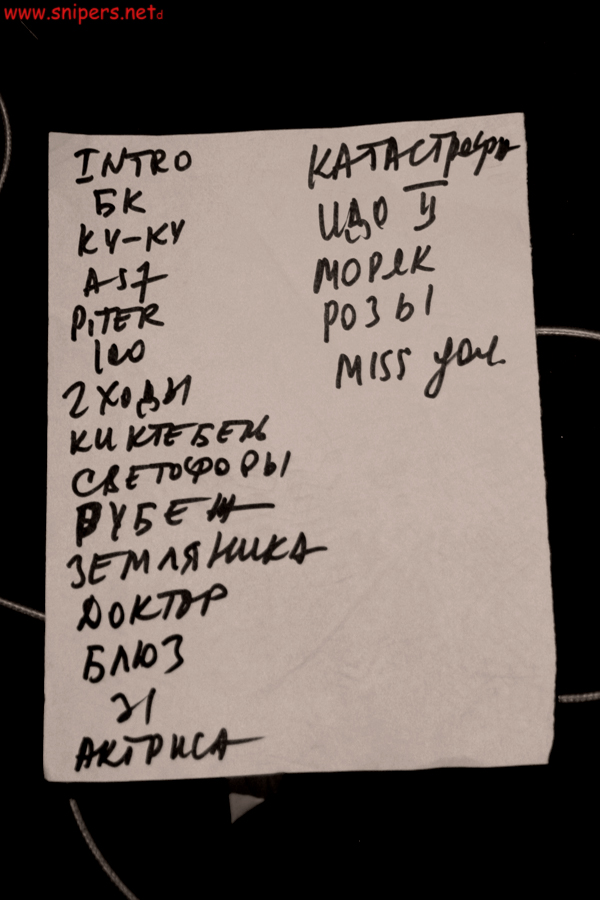 www.snipers.net
INTRO
БК
КУ-КУ
AS7
PiTER
100
2 ХОДЫ
КИКТЕБЕЛЬ
СВЕТОФОРЫ
РУБЕЖ
ЗЕМЛЯНИКА
ДОКТОР
БЛЮЗ
21
АКТРИСА
КАТАСТРОФЫ
МОРЯК
РОЗЫ
MISS you